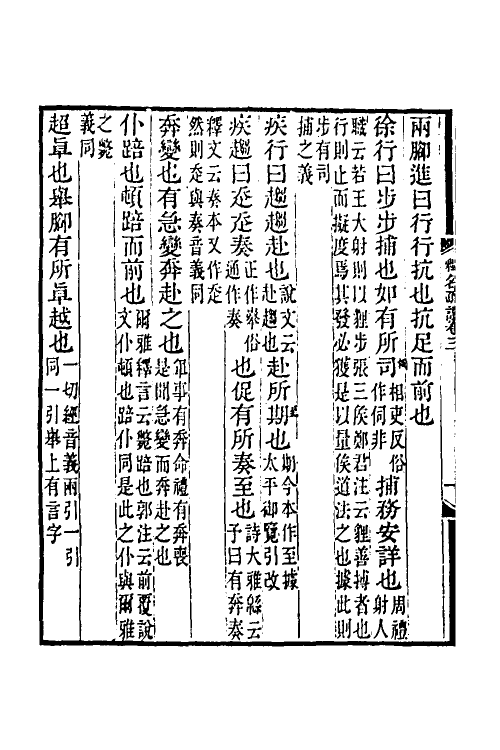 釋名疏證卷三
兩腳進曰行行抗也抗足而前也
徐行曰步步捕也如有所司相吏反俗作伺非捕務安詳也周禮射人
職云若王大射則以貍步張三侯鄭君注云貍善搏者也
行則止而擬度焉其發必獲是以量侯道法之也據此則
步有司
捕之義
疾行曰趨趨赴也說文云赴趨也赴所期也期今本作至據太平御覽引改
疾趨曰走走奏正作俗通作奏也促有所奏至也詩大雅緜云予曰有奔奏
釋文云奏本又作走
然則走與奏音義同
奔變也有急變奔赴之也軍事有奔命禮有奔喪是聞急變而奔赴之也
仆踣也頓踣而前也爾雅釋言云斃踣也郭注云前覆說文仆頓也踣仆同是此之仆與爾雅
之斃
義同
超卓也舉腳有所卓越也一切經音義兩引一引同一引舉上有言字